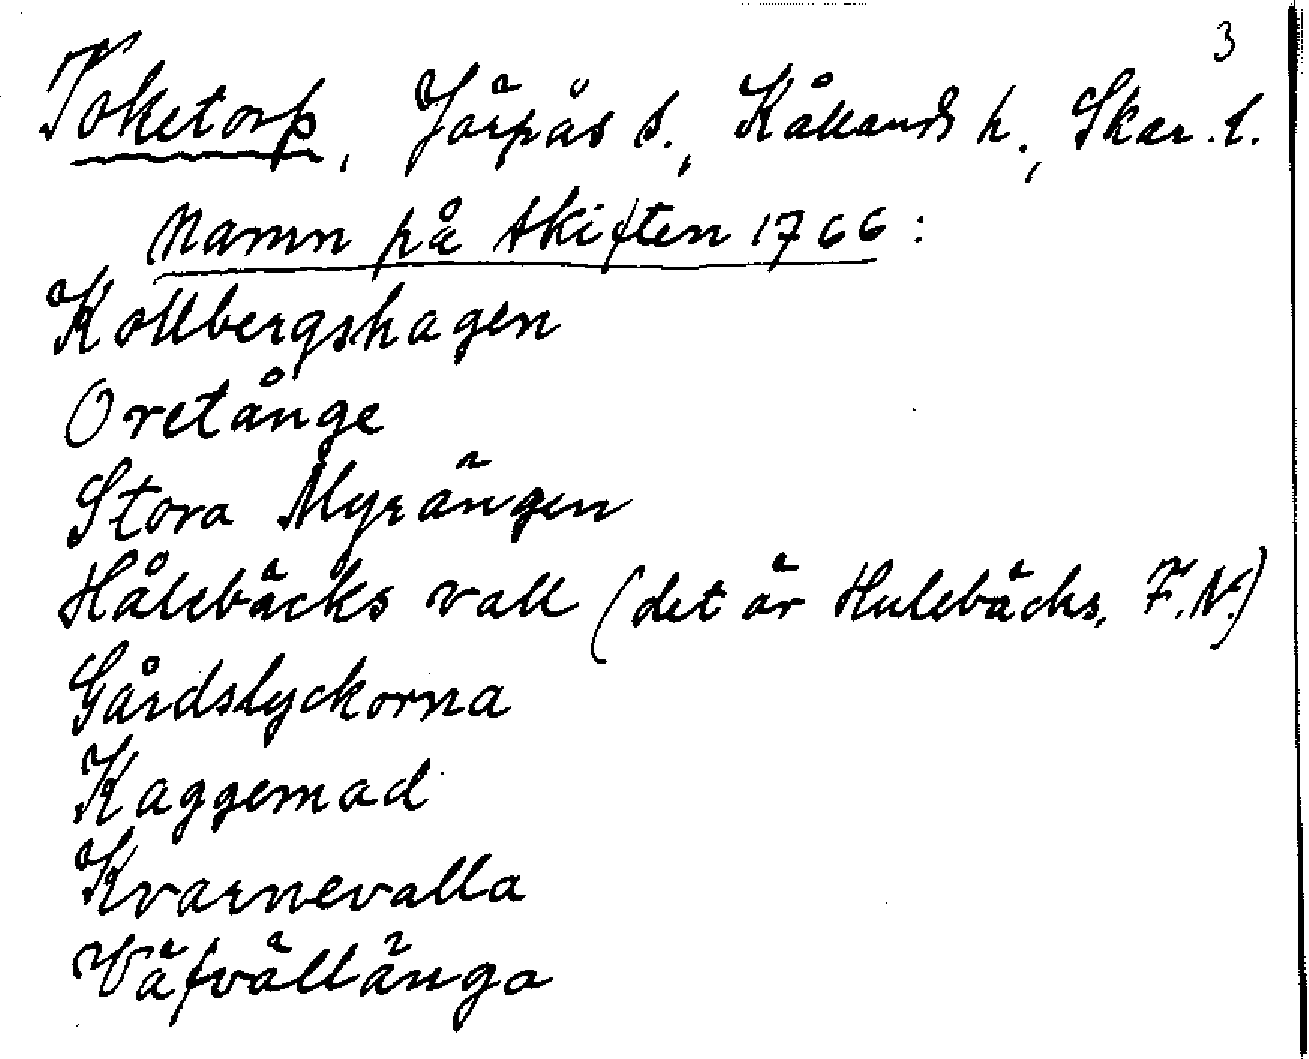 3
Toketorp, Järpås s., Kållands h., Skar. l.
Namn på skiften 1766:
Kollbergshagen
Oretånge
Stora Myrängen
Hålebäcks vall (det är Hulebäcks, F.N.)
Gårdslyckorna
Kaggemad
Kvarnevalla
Väfvällänga